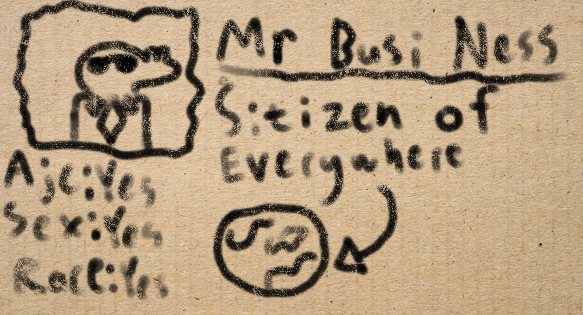 Mr Busi Ness
Sitizen of
Everywhere
Age:Yes
Sex:Yes
Race:Yes